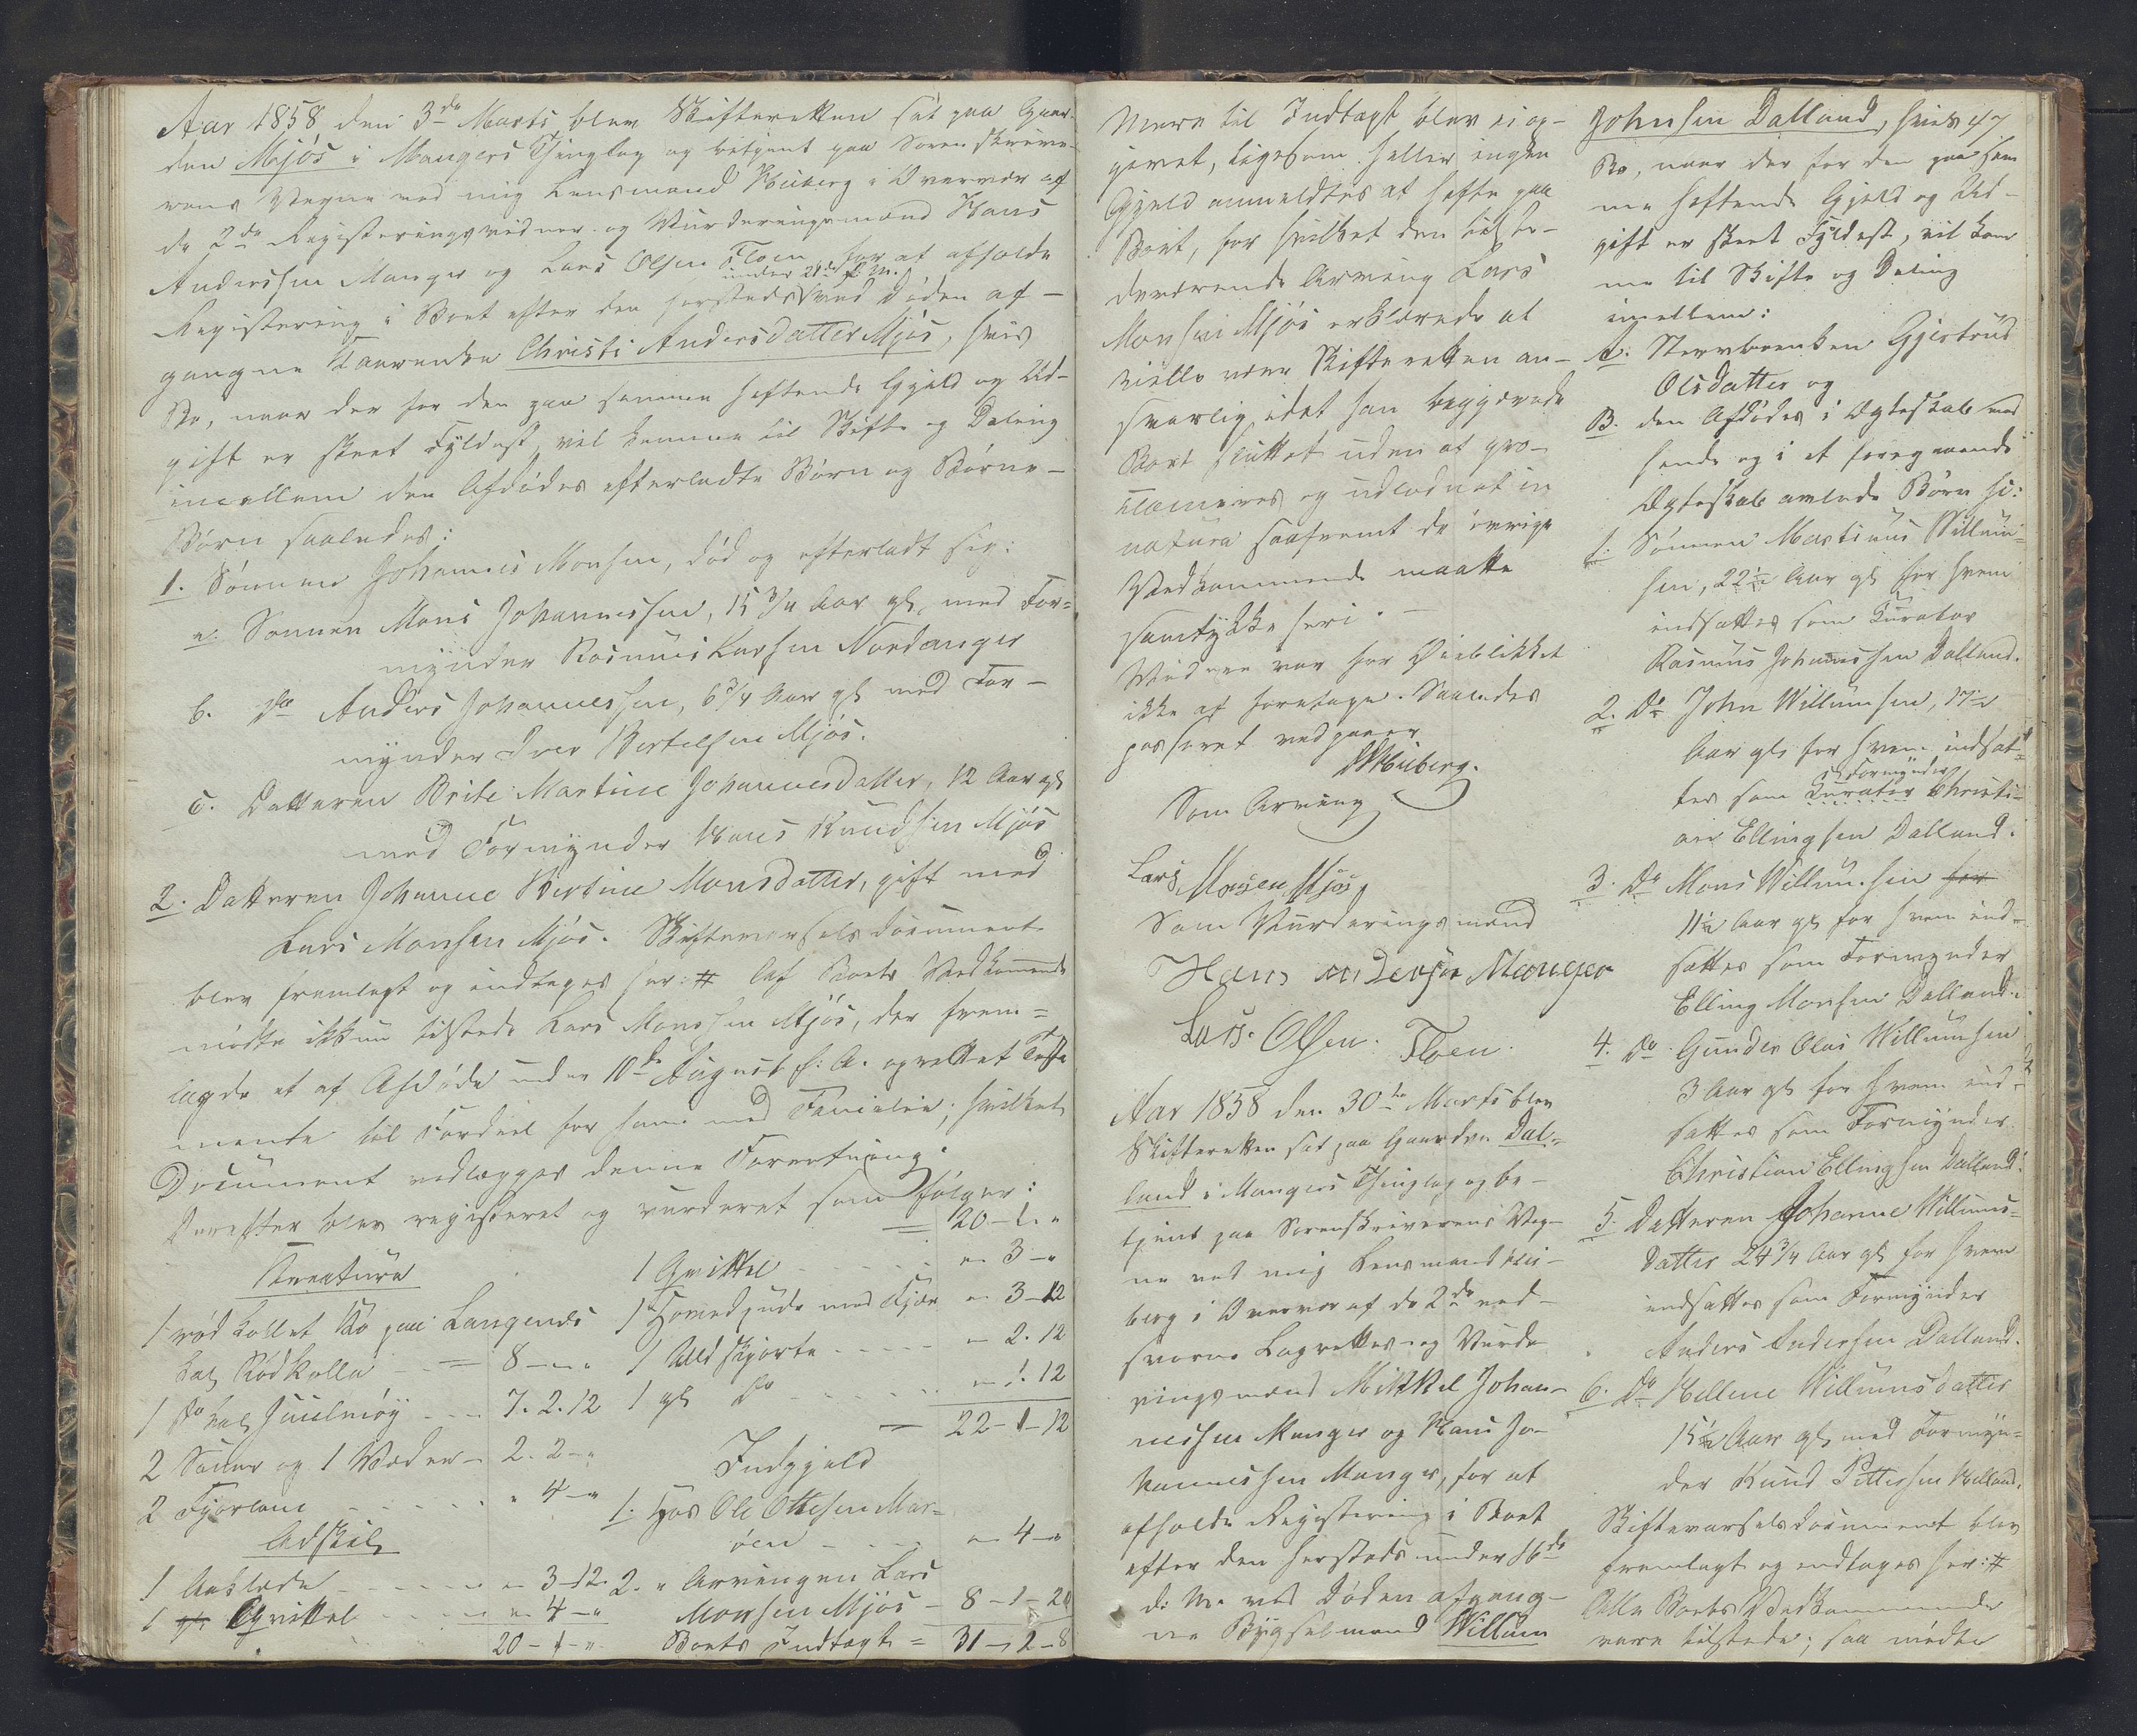 Aar 1858, den 3de Marts blev Skifteretten sat paa Gaar-
den Mjös i Mangers Thinglag og betjent paa Sorenskrive-
rens Vegne ved mig Lensmand Heiberg i Overvær af
de 2de Registreringsvidner og Vurderingsmænd Hans
Anderssen Manger og Lars Olsen Floen for at afholde
under 21de f. M.
Registrering i Boet efter den sammesteds ved Døden af-
gangne Kaarenke Christi Andersdatter Mjös, hvis
Bo, naar der for den paa samme heftende Gjæld og Ud-
gift er skeet Fyldest, vil komme til Skifte og Deling
imellem den Afdødes efterladte Børn og Børne-
Børn saaledes:
1. Sønnen Johannes Monsen, død og efterladt sig:
a. Sønnen Mons Johannessen, 15 3/4 Aar gl, med For=
mynder Rasmus Larsen Nordanger
b. do Anders Johannessen, 6 3/4 Aar gl med For-
mynder Iver Bertelsen Mjös.
c. Datteren Brite Martine Johannesdatter, 12 Aar gl
med Formynder Hans Knudsen Mjös
2. Datteren Johanne Bertine Monsdatter, gift med
Lars Monsen Mjös. Skiftevarselsdocument
blev fremlagt og indtages her: # Af Boets Vedkommende
mødte ikkun tilstede Lars Monsen Mjös, der frem=
lagde et af Afdøde under 10de August f. A. oprettet Testa
mente til Fordeel for ham med Familie; hvilket
Document vedlægges denne Forretning.
Derefter blev registreret og vurderet som følger:
Kreature
1 rød kollet Ko paa Langenes
kal Rødkolla = 8 - " - "
1 do kal Juulmöy - 7. 2. 12
2 Sauer og 1 Væder - 2. 2 - "
2 Fjorlam - " 4 - "
Adskil
1 Aaklæde - " 3 - 12
1 gl Qvittel - " 4 - "
20 - 1 - "
= 20 - 1. "
1 Qvittel - " 3 - "
1 Hovedpude med Fjær " 3 - 12
1 Uldskjorte - " 2. 12
1 gl do - " 1. 12
= 22 - 1 - 12
Indgjeld
1. Hos Ole Olsen Mar=
öen - " 4 - "
2. " Arvingen Lars
Monsen Mjös - 8 - 1 - 20
Boets Indtægt = 31 - 2 - 8
Mere til Indtægt blev ei op-
givet, ligesom heller ingen
Gjæld anmeldtes at hefte paa
Boet, for hvilket den tilste-
deværende Arving Lars
Monsen Mjös erklærede at
ville være Skifteretten an-
svarlig idet han begjærede
Boet sluttet uden at pro-
clameres og udlodnet in
natura saafremt de øvrige
Vedkommende maatte
samtykke heri. -
Videre var for Øieblikket
ikke at foretage. Saaledes
passeret vedgaaer
Heiberg.
Som Arving
Lars Monsen Mjös
Som Vurderingsmænd
Hans andersen Manger
Lars. Olsen. Floen.
Aar 1858 den 30te Marts blev
Skifteretten sat paa Gaarden Dal-
land i Mangers Thinglag og be-
tjent paa Sorenskriverens Veg-
ne ved mig Lensmand Hei-
berg i Overvær af de 2de ed-
svorne Lagrettes- og Vurde
ringsmænd Mikkel Johan-
nessen Manger og Hans Jo-
hannessen Manger, for at
afholde Registrering i Boet
efter den hersteds under 16de
d: M. ved Døden afgang-
ne Bygselmand Willum
Johnsen Dalland, hvis
Bo, naar der for den paa sam
me heftende Gjæld og Ud-
gift er skeet Fyldest, vil kom
me til Skifte og Deling
imellem:
A. Stervboenken Gjertrud
Olsdatter og
B. den Afdødes i Ægteskab med
hende og i et foregaaende
Ægteskab avlede Børn so:
1. Sønnen Martinus Willum-
sen, 22 1/2 Aar gl for hvem
indsattes som Curator
Rasmus Johannessen Dalland.
2. Do John Willumsen, 17 1/2
Aar gl for hvem indsat-
Formynder
tes som Curator Christi-
an Ellingsen Dalland.
3. Do Mons Willumsen for
11 1/2 Aar gl for hvem ind-
sattes som Formynder
Elling Monsen Dalland.
4. Do Gunder Olai Willumsen
3 Aar gl for hvem ind-
sattes som Formynder
Christian Ellingsen Dalland.
5. Datteren Johanne Willums-
datter 24 3/4 Aar gl for hvem
indsattes som Formynder
Anders Andersen Dalland.
6. Do Hellene Willumsdatter
15 1/2 Aar gl med Formyn-
der Knud Pettersen
Skiftevarselsdocument blev
fremlagt og indtages her: #
Alle Boets Vedkommende
vare tilstede; saa mødte